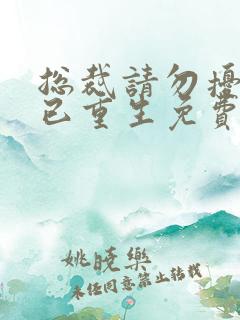 总裁請勿擾
已重生免費
姚曉樂
未任同意禁止转载